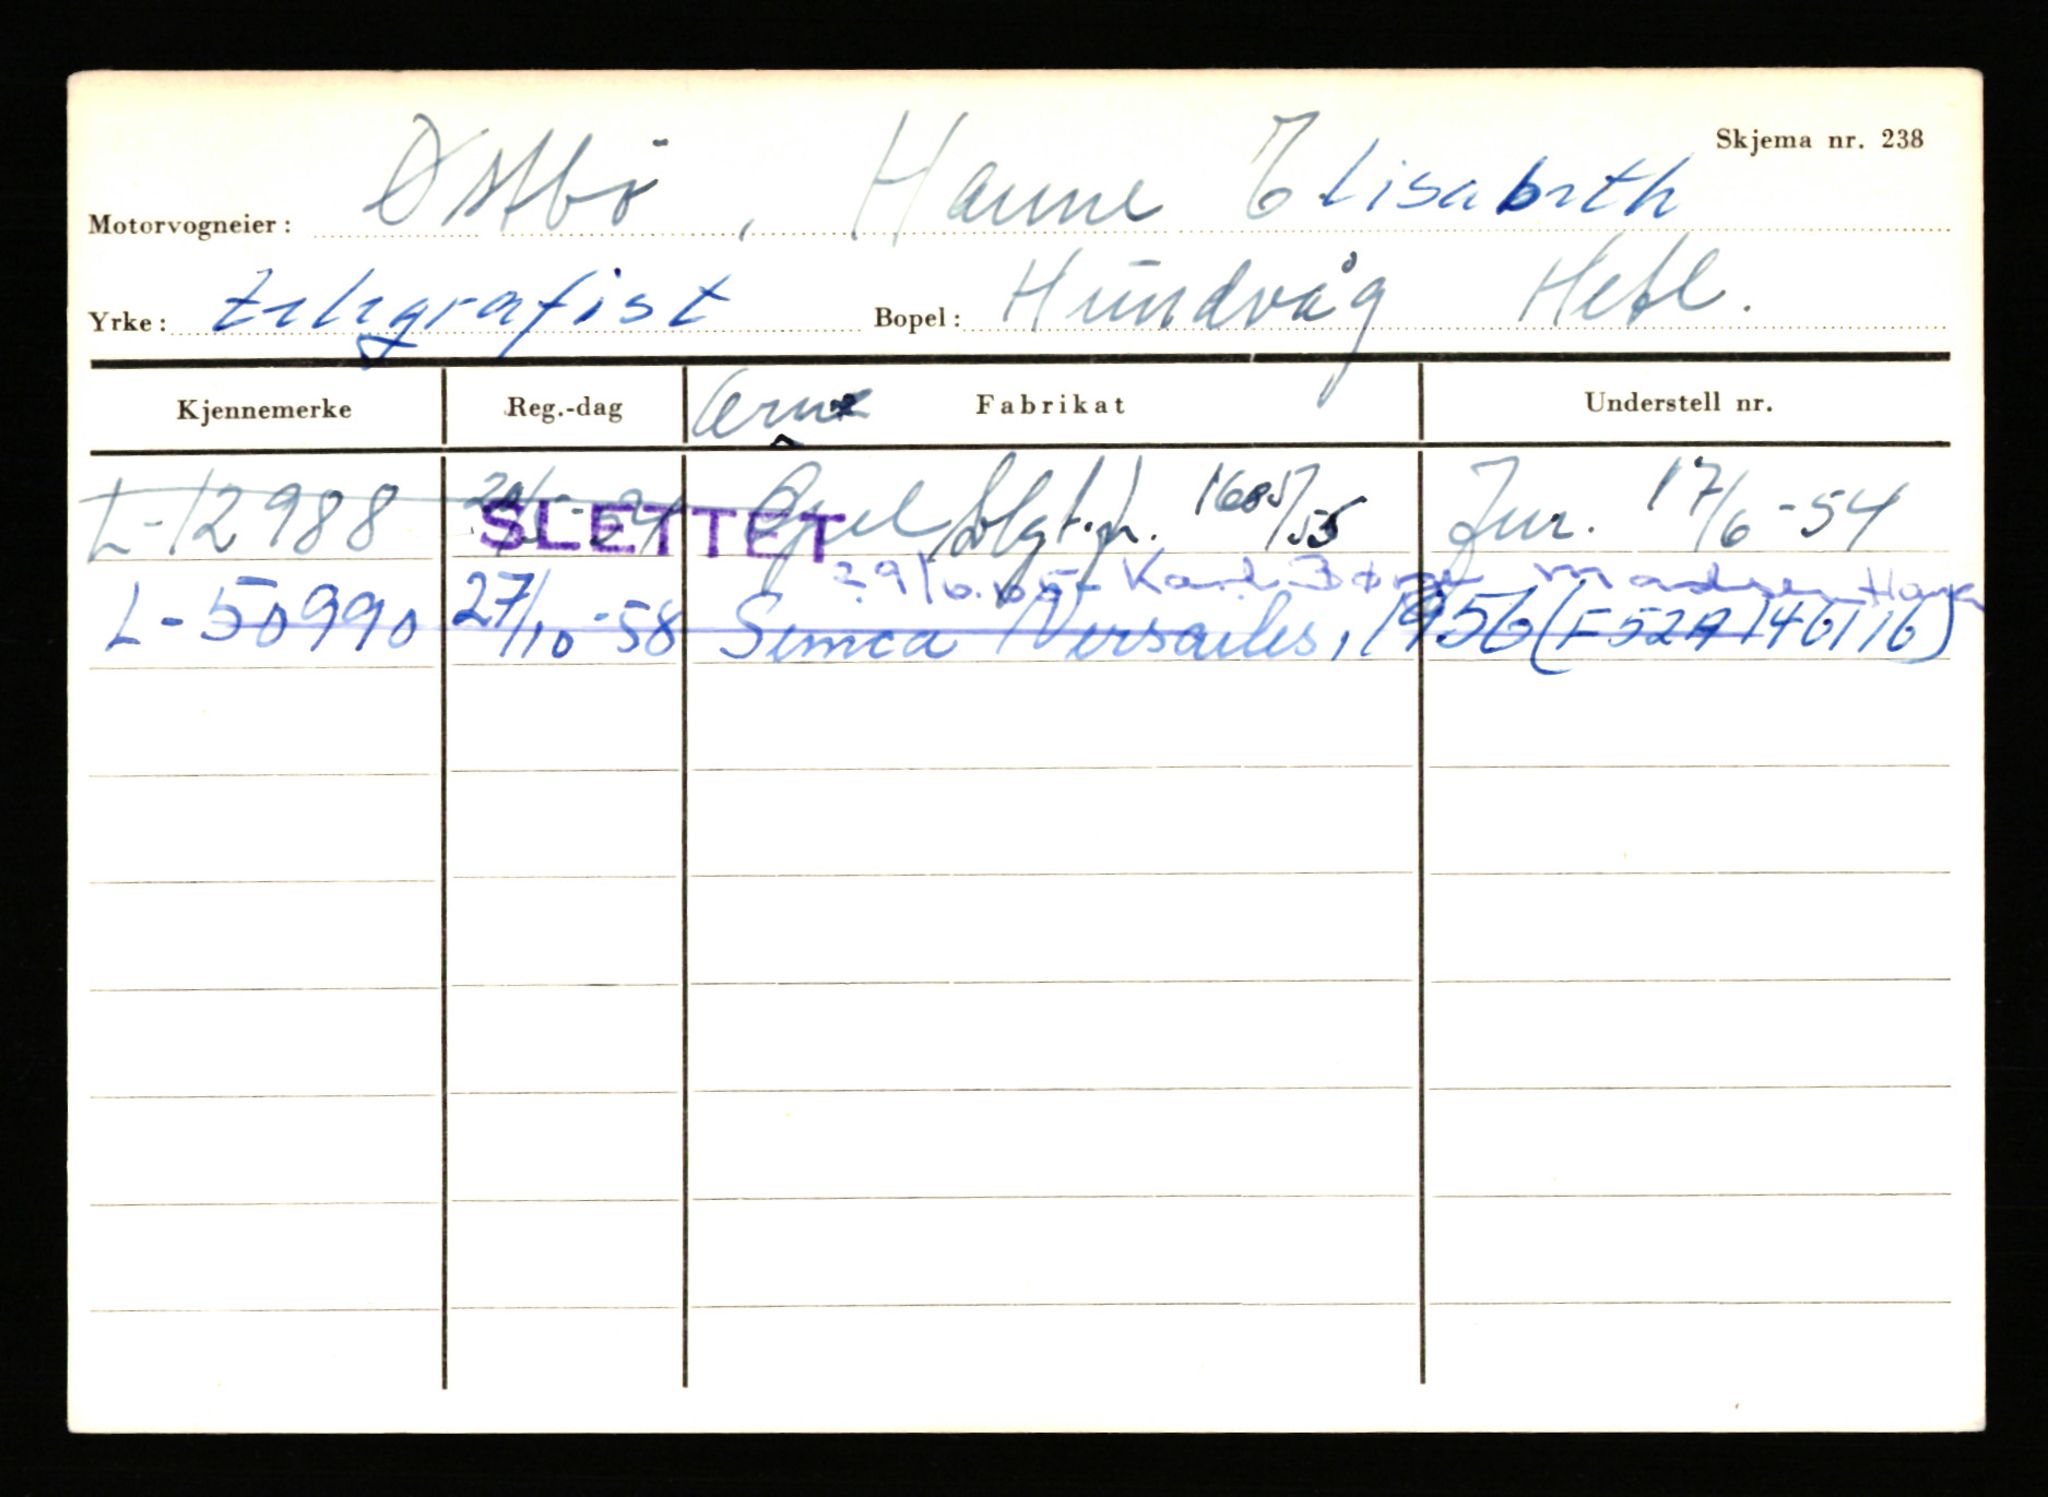 Skjema nr. 238
Motorvogneier: Østbö, Hanne Elisabeth
Yrke: telegrafist Bopel: Hundvåg Hetl.
Kjennemerke Reg.-dag Fabrikat Understell nr.
Arne
L-12988 SLETTET Opel 17/6-54
29/6.65 Karl Børge Madsen
L-50990 27/10-58 Simca Versailes, 1956 (F52A146116)